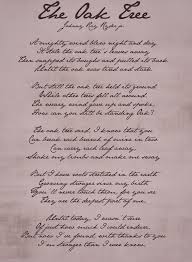 The Oak Tree
Johnny Ray Ryder Jr.
A mighty wind blew night and day
It stole the oak tree's leaves away
Then snapped its boughs and pulled its bark
Until the oak was tired and stark
But still the oak tree held its ground
While other trees fell all around
The weary wind gave up and spoke
How can you still be standing Oak?
The oak tree said, I know that you
Can break each branch of mine in two
Can carry each leaf away
Shake my limbs and make me sway
But I have roots stretched in the earth
Growing stronger since my birth
You'll never touch them, for you see
They are the deepest part of me
Until today, I wasn't sure
Of just how much I could endure
But now I've found with thanks to you
I'm stronger than I ever knew